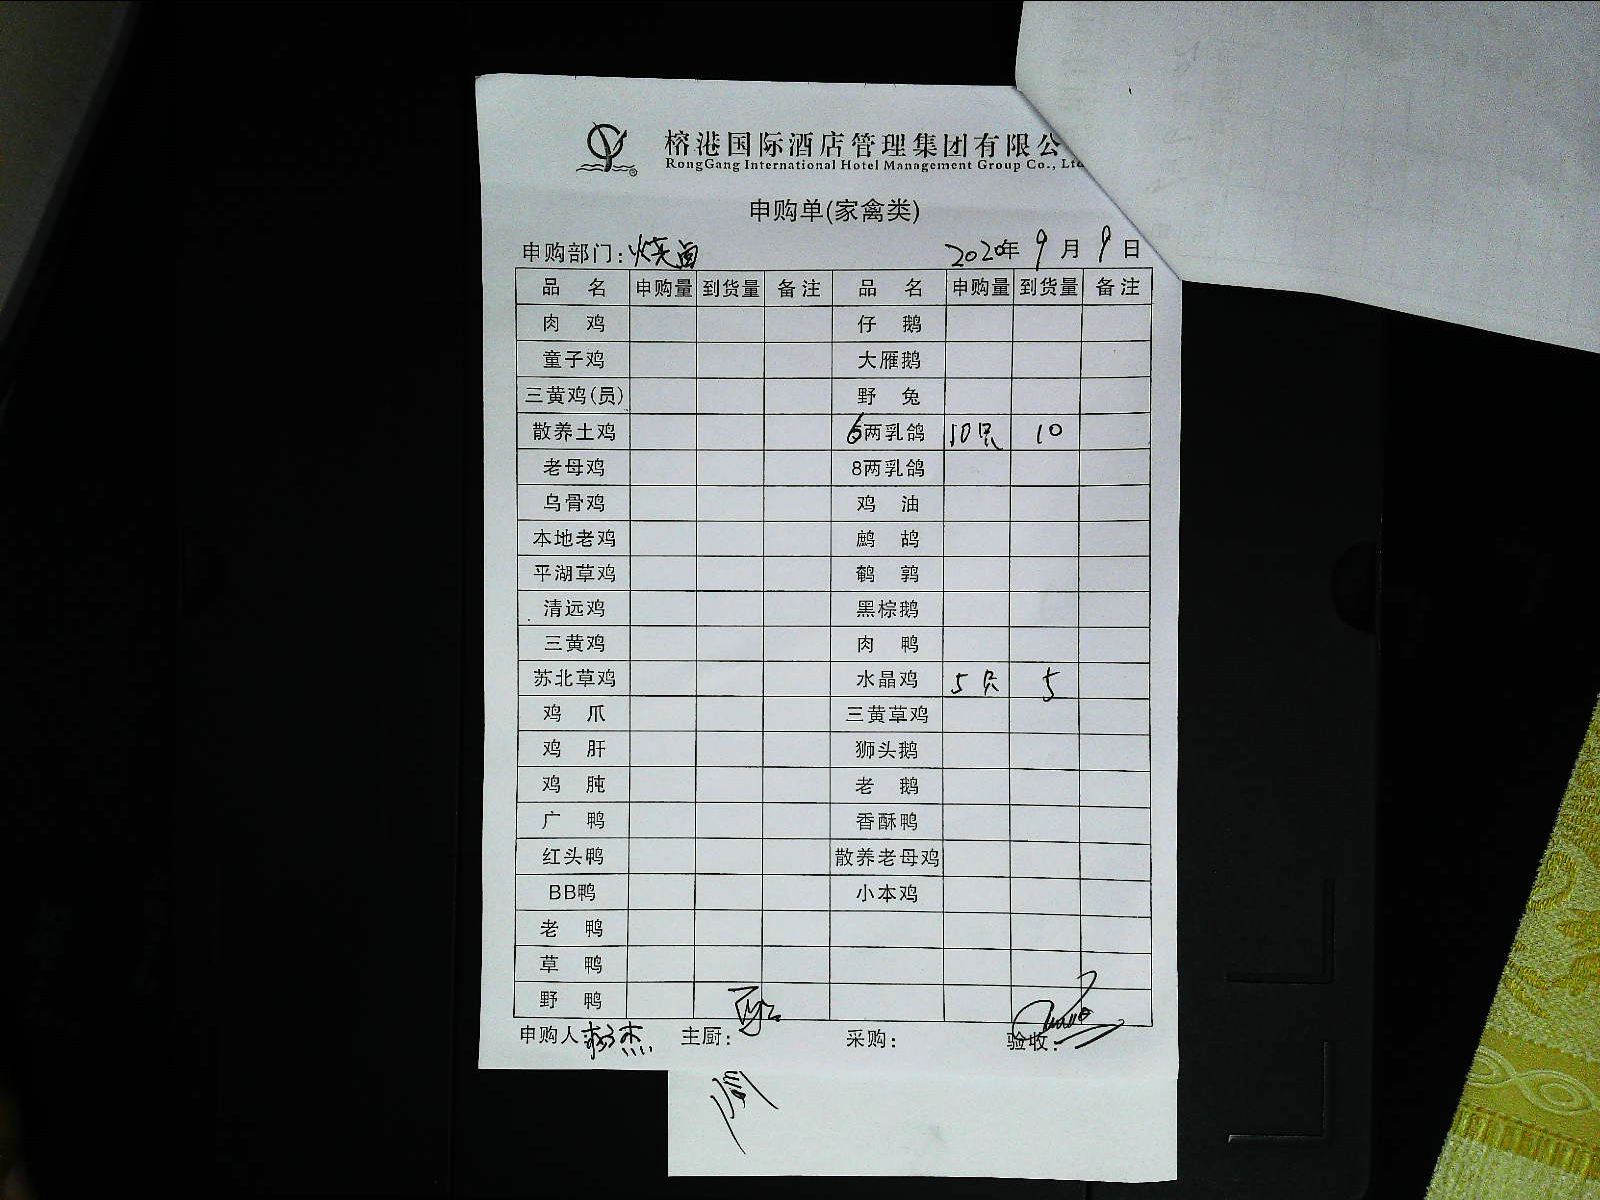 榕港国际酒店管理集团有限公
RongGang International Hotel Management Group Co., Ltd
申购单(家禽类)
申购部门: 烧卤 2020年 9月 9日
品 名 申购量 到货量 备注 品 名 申购量 到货量 备注
肉 鸡 仔 鹅
童子鸡 大雁鹅
三黄鸡(员) 野 兔
散养土鸡 6两乳鸽 10只 10
老母鸡 8两乳鸽
乌骨鸡 鸡 油
本地老鸡 鹧 鸪
平湖草鸡 鹌 鹑
清远鸡 黑棕鹅
三黄鸡 肉 鸭
苏北草鸡 水晶鸡 5只 5
鸡 爪 三黄草鸡
鸡 肝 狮头鹅
鸡 肫 老 鹅
广 鸭 香酥鸭
红头鸭 散养老母鸡
BB鸭 小本鸡
老 鸭
草 鸭
野 鸭
申购人 主厨: 采购: 验收: